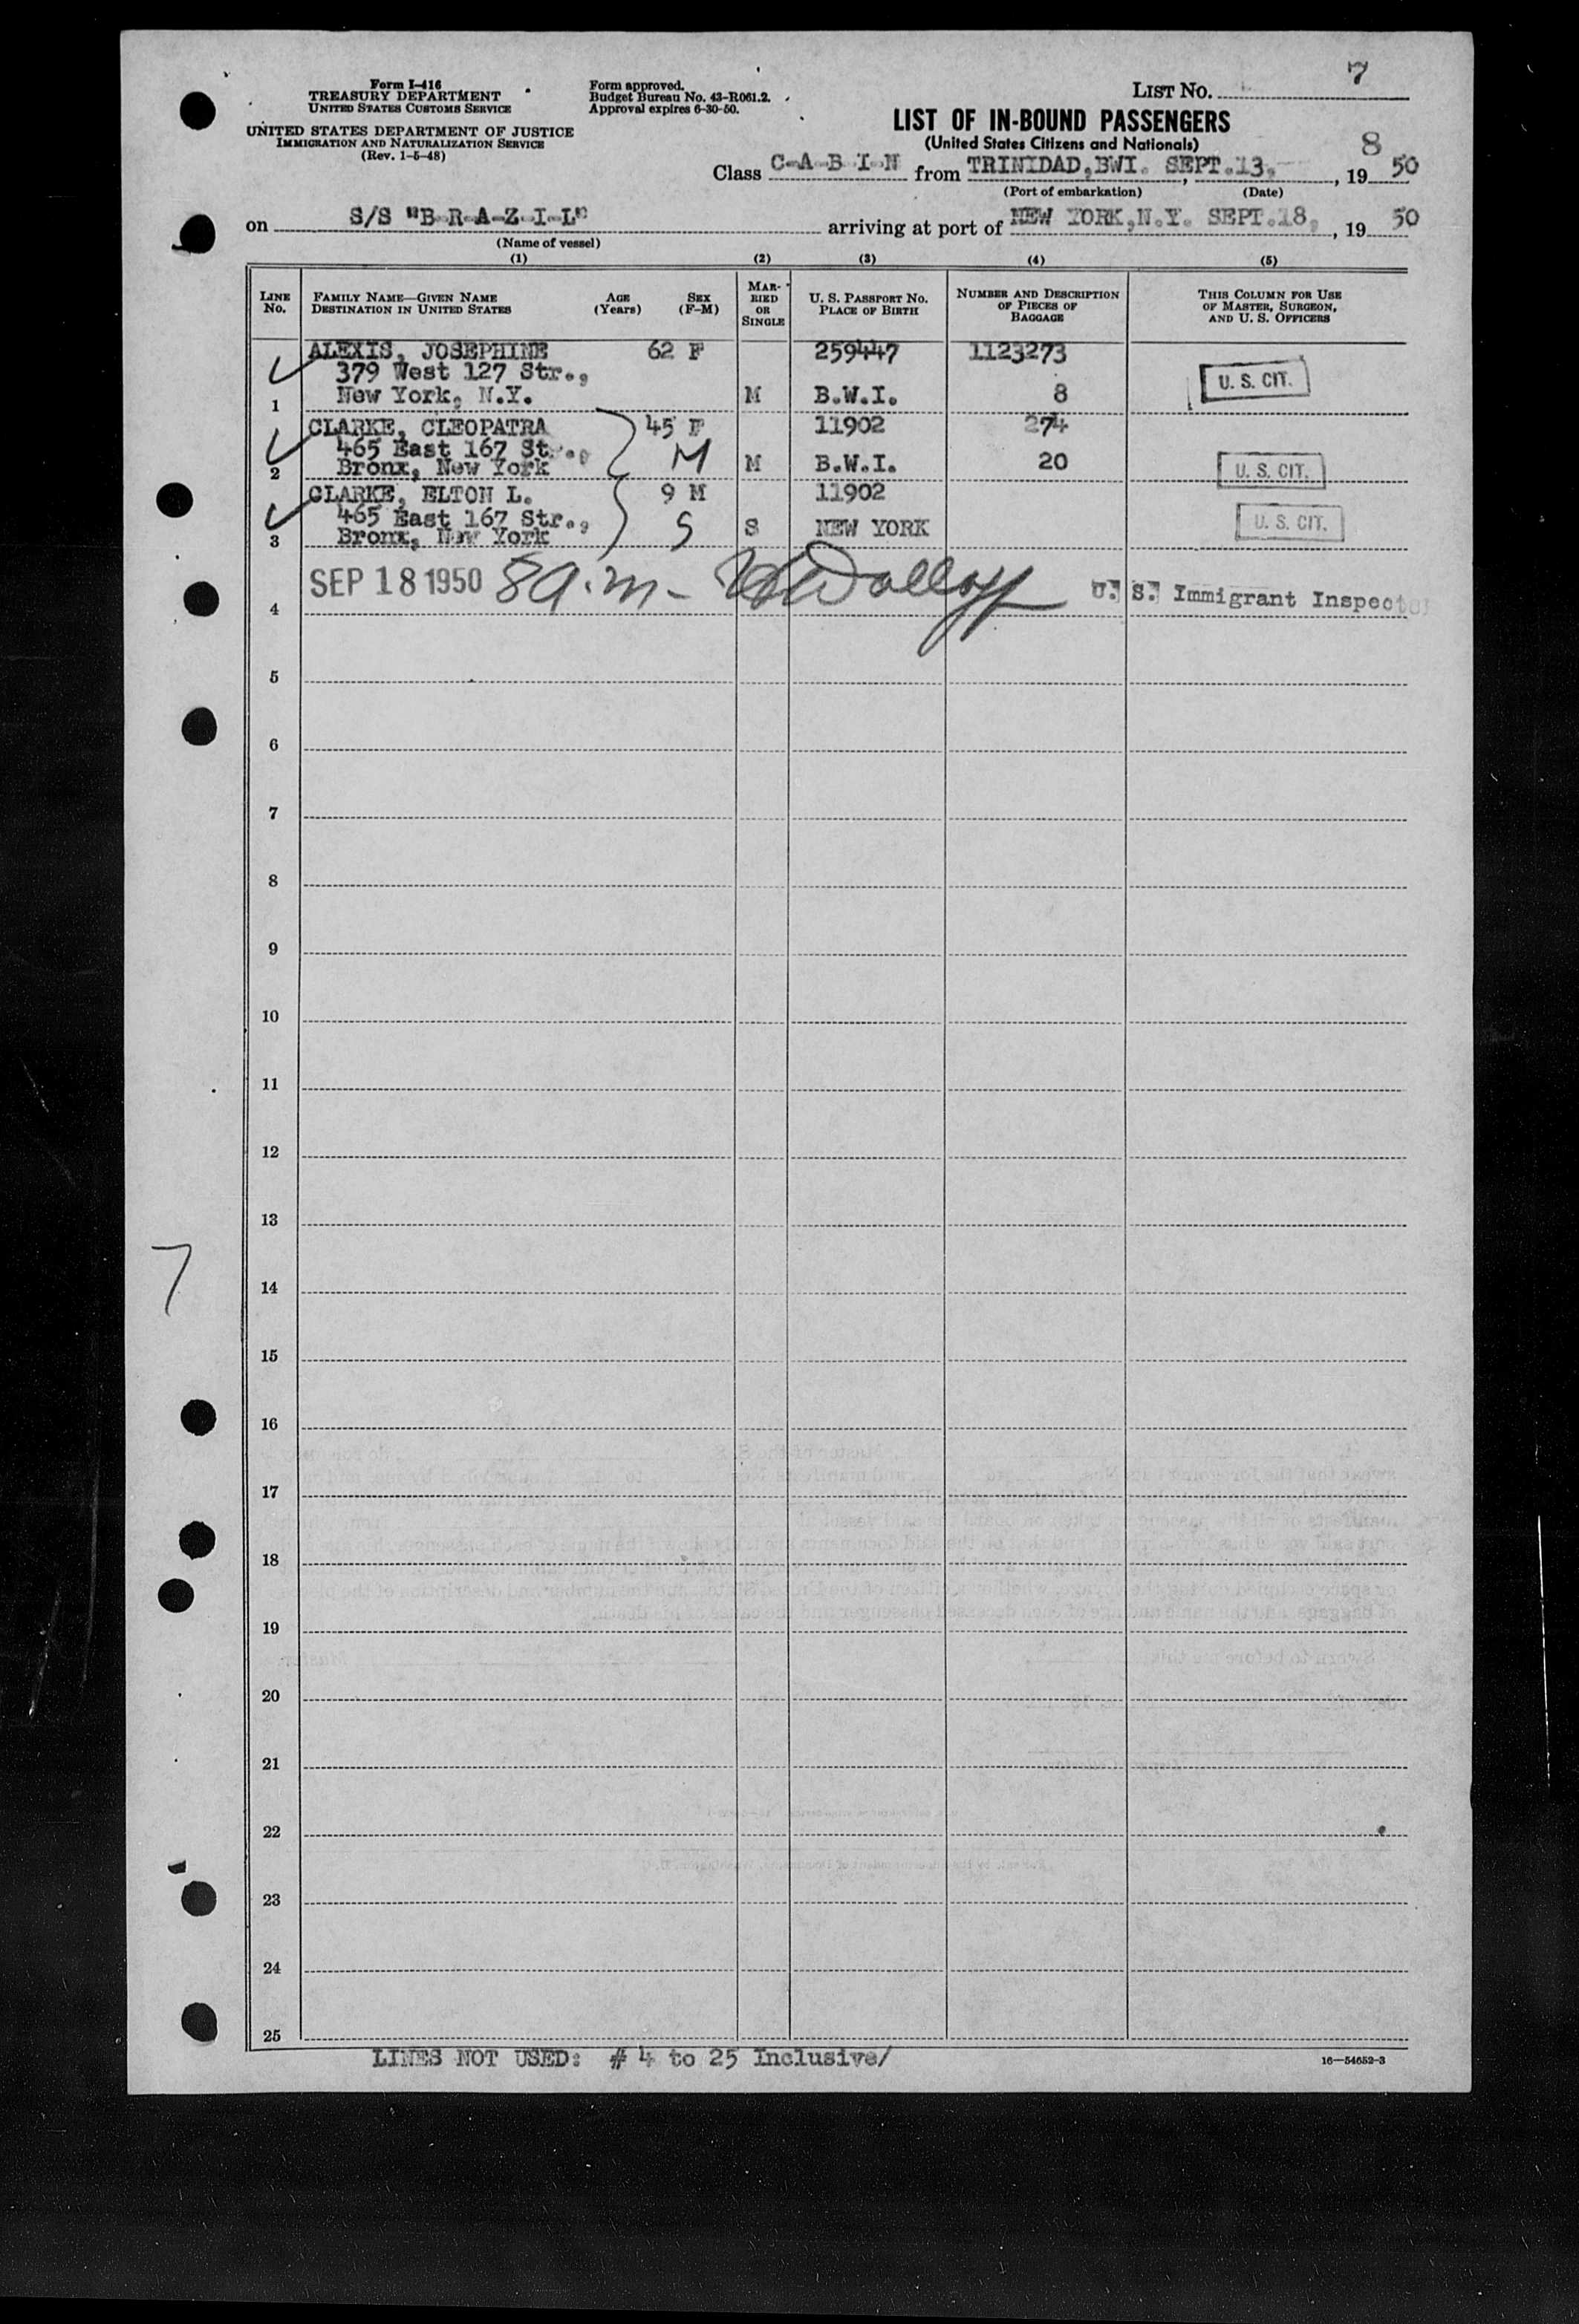 Form I-416
TREASURY DEPARTMENT
UNITED STATES CUSTOMS SERVICE
UNITED STATES DEPARTMENT OF JUSTICE
IMMIGRATION AND NATURALIZATION SERVICE
(Rev. 1-5-48)
Form approved.
Budget Bureau No. 43-R061.2.
Approval expires 6-30-50.
LIST No. 7
LIST OF IN-BOUND PASSENGERS
(United States Citizens and Nationals)
8
Class C-A-B I-N from TRINIDAD,BWI. SEPT.13, 19 50
(Port of embarkation) (Date)
on S/S "B-R-A-Z-I-L" arriving at port of NEW YORK,N.Y. SEPT.18, 19 50
(Name of vessel)
(1) (2) (3) (4) (5)
LINE No. FAMILY NAME—GIVEN NAME DESTINATION IN UNITED STATES AGE (Years) SEX (F-M) MARRIED OR SINGLE U. S. PASSPORT No. PLACE OF BIRTH NUMBER AND DESCRIPTION OF PIECES OF BAGGAGE THIS COLUMN FOR USE OF MASTER, SURGEON, AND U. S. OFFICERS
ALEXIS, JOSEPHINE 62 F 259447 1123273
379 West 127 Str., U. S. CIT.
1 New York, N.Y. M B.W.I. 8
CLARKE, CLEOPATRA 45 F 11902 274
465 East 167 St.,
2 Bronx, New York M M B.W.I. 20 U. S. CIT.
CLARKE, ELTON L. 9 M 11902
465 East 167 Str., U. S. CIT.
3 Bronx, New York S S NEW YORK
4 SEP 18 1950 8 a.m. U. S. Immigrant Inspector
5
6
7
8
9
10
11
12
13
7
14
15
16
17
18
19
20
21
22
23
24
25
LINES NOT USED: # 4 to 25 Inclusive/
16—54652-3